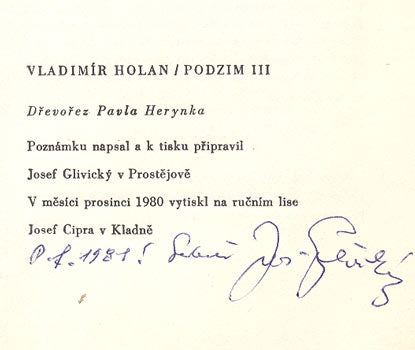 VLADIMÍR HOLAN / PODZIM III
Dřevořez Pavla Herynka
Poznámku napsal a k tisku připravil
Josef Glivický v Prostějově
V měsíci prosinci 1980 vytiskl na ručním lise
Josef Cipra v Kladně
P.f. 1981!